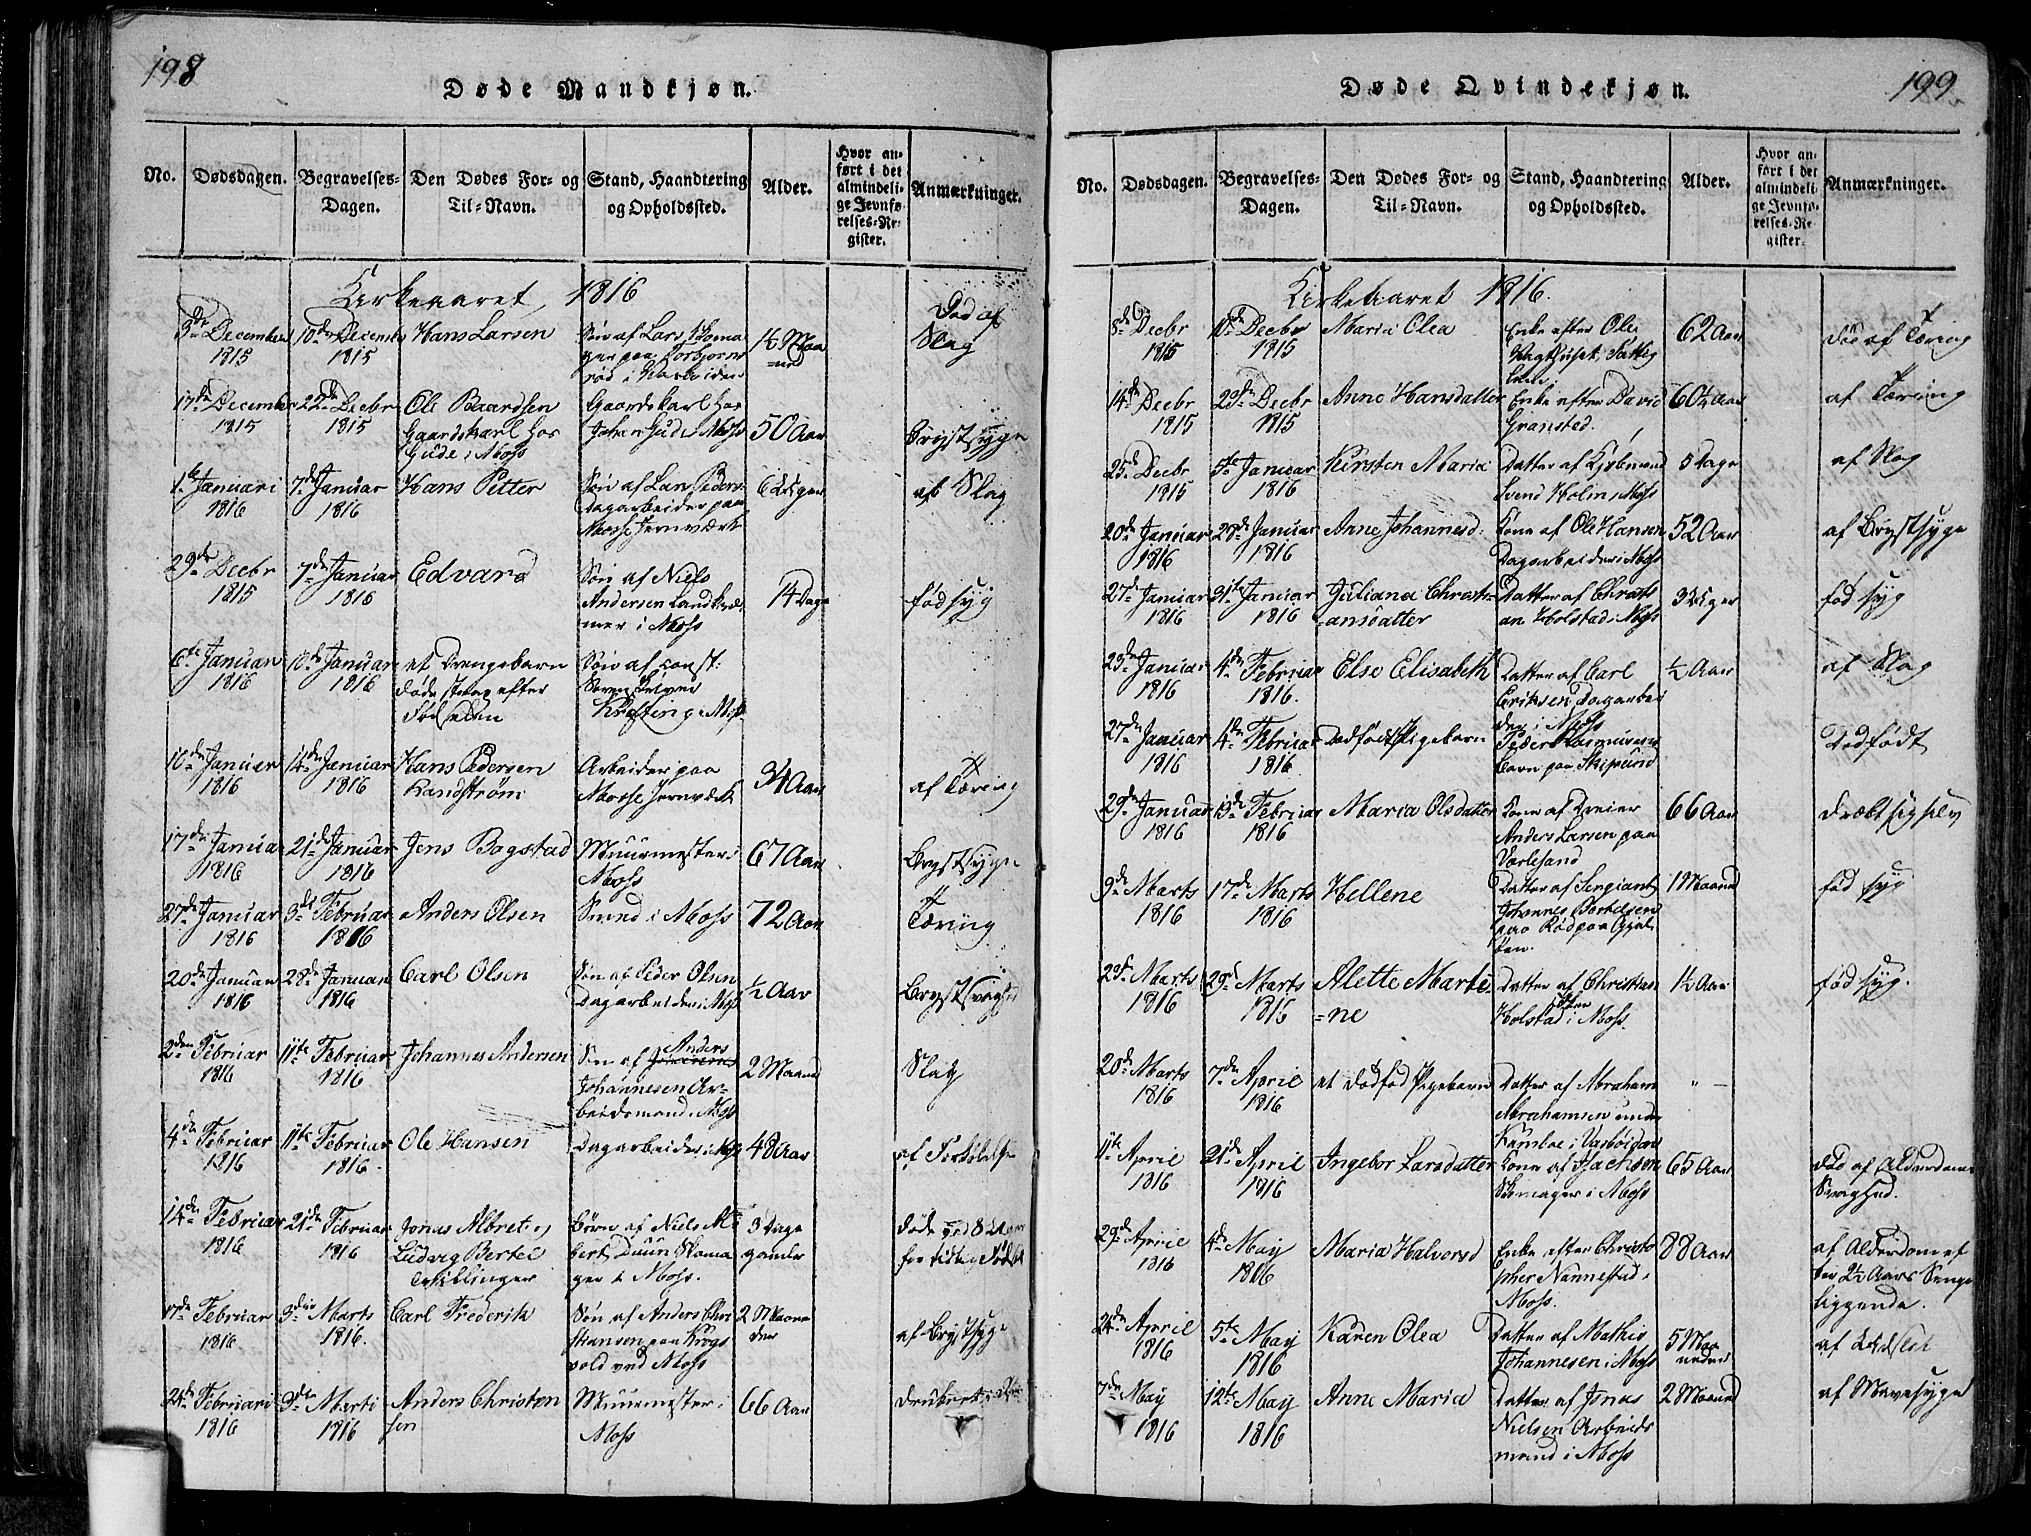 198
Døde Mandkjøn.
No.
Dødsdagen.
Begravelses-
Dagen.
Den Dødes For- og
Til-Navn.
Stand, Haandtering
og Opholdssted.
Alder.
Hvor an-
ført i det
almindeli-
ge Jevnfø-
relses-Re-
gister.
Anmærkninger.
Kirkeaaret 1816
3de December
1815
10de Decembr
1815
Hans Larsen
Søn af Lars Skoma
ger paa Torbjørns
rød i Vandsiden
1½ Maa
=ned
Død af
Slag
17de December
1815
22de Decbr
1815
Ole Baardsen
Gaardskarl hos
Gude i Moss
Gaardskarl hos
Johan Gude i Moss
50 Aar
Brystsyge
1te Januari
1816
7de Januar
1816
Hans Pitter
Søn af Lars Peders
Dagarbeider paa
Mosse Jernværk
6 Uger
af Slag
29de Decbr
1815
7de Januar
1816
Edvard
Søn af Niels
Andersen Landkræ
mer i Moss
14 Dage
fød syg
6te Januar
1816
10de Januar
1816
et Drengebarn
døde strax efter
Fødselen
Søn af const:
Sorenskriver
Krefting i Moss
10de Januar
1816
14de Januar
1816
Hans Pedersen
Sandstrøm
Arbeider paa
Mosse Jernværk
34 Aar
af Tæring
17de Januar
1816
21de Januar
1816
Jens Bogstad
Muurmester i
Moss
67 Aar
Brystsyge
27de Januar
1816
3de Februar
1816
Anders Olsen
Smed i Moss
72 Aar
Tæring
20de Januar
1816
28de Januar
1816
Carl Olsen
Søn af Peder Olsen
Dagarbeider i Moss
½ Aar
Brystsvaghed
2den Februar
1816
11te Februar
1816
Johannes Andersen
Søn af Anders
Johannesen Ar-
beidsmand i Moss
2 Maaned
Slag
4de Februar
1816
11te Februar
1816
Ole Hansen
Dagarbeider i Moss
48 Aar
af Forkiølelse
14de Februar
1816
21de Februar
1816
Jonas Albret og
Ludvig Bertel
Tvillinger
Børn af Niels Al
bert Duun Skoma
ger i Moss.
3 Dage
gamle
døde ved 8 Uger
for tidlig Fødsel
17de Februar
1816
3die Marts
1816.
Carl Frederik
Søn af Anders Chri
stiansen paa Krogs
vold ved Moss
2 Maane
der
af Brystsyge
24de Februari
1816
3die Marti
1816
Anders Christen
sen
Muurmester i
Moss
66 Aar
199.
Døde Qvindekjøn.
No.
Dødsdagen.
Begravelses-
Dagen.
Den Dødes For- og
Til-Navn.
Stand, Haandtering
og Opholdssted.
Alder.
Hvor an-
ført i det
almindeli-
ge Jevnfø-
relses-Re-
gister.
Anmærkninger.
Kirkeaaret 1816.
8de Decbr
1815
10de Decbr
1815
Maria Olea
Enke efter Ole
Vagthuset Fattig
lem.
62 Aar
død af Tæring
14de Decbr
1815
23de Decbr
1815
Anne Hansdatter
Enke efter David
Gransted.
60½ Aar
af Tæring
25de Decbr
1815
5te Januar
1816
Kirsten Maria
Datter af Kjøbmand
Svend Holm i Moss
5 Dage
af Slag
20de Januar
1816
28de Januar
1816
Anne Johannesd:
Kone af Ole Hansen
Dagarbeider i Moss
52 Aar
af Brystsyge
27de Januar
1816
31te Januar
1816
Juliana Christi-
=ansdatter
Datter af Christi
an Holstad i Moss
3 Uger
fød syg
23de Januar
1816
4de Februar
1816.
Else Elisabeth
Datter af Carl
Eriksen Dagarbei
der i Moss
½ Aar
af Slag
27de Januar
1816
4de Februar
1816
Dødfødt Pigebarn
Peder Rasmussens
Barn paa Skipsund
Dødfødt
29de Januar
1816
13de Februar
1816
Maria Olsdatter
Kone af Dreier
Anders Larsen paa
Varlesand
66 Aar
dræbt sig selv
9de Marts
1816
17de Marts
1816
Hellene
Datter af Sergiant
Johannes Bertelsen
paa Rød paa Gjel-
øen.
1 Maaned
fød syg
23de Marts
1816
29de Marts
1816
Alette Marti-
=ne
Datter af Christian
Holstad i Moss.
1½ Aar
fød syg.
20de Marts
1816
7de April
1816
et dødfød Pigebarn
Datter af Abraham
Abrahamsen under
Kamboe i Vandsiden
" –
11te April
1816
21de April
1816
Ingebor Larsdatter
Kone af Isachsen
Skomager i Moss
65 Aar
død af Alderdoms
Svaghed.
29de April
1816
4de May
1816
Maria Halvorsd
Enke efter Christo
pher Nannestad i
Moss.
88 Aar
af Alderdom ef
ter 2½ Aars Senge
liggende.
24de April
1816
5te May
1816
Karen Olea
Datter af Mathis
Johannesen i Moss
5 Maa
neder
7de May
1816
12te May
1816
Anne Maria
Datter af Jonas
Nielsen Arbeids
mand i Moss
2 Maaned
af Mavesyge